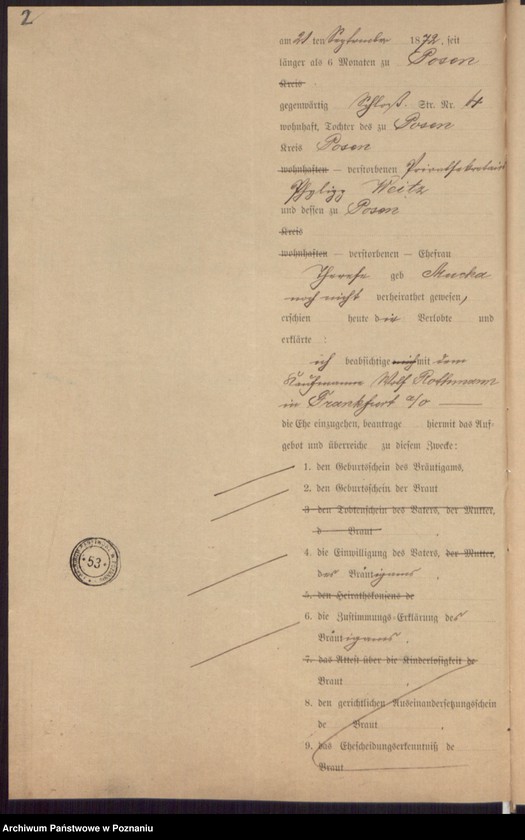 2
am 21 ten September 1872, seit
länger als 6 Monaten zu Posen
Kreis
gegenwärtig Schloß Str. Nr. 4
wohnhaft, Tochter des zu Posen
Kreis Posen
wohnhaften — verstorbenen Privatsekretair
Philipp Weitz
und dessen zu Posen
Kreis
wohnhaften — verstorbenen — Ehefrau
Therese geb Mucha
noch nicht verheirathet gewesen,
erschien heute die Verlobte und
erklärte :
ich beabsichtige mich mit dem
Kaufmann Wolf Rothmann
in Frankfurt a/O
die Ehe einzugehen, beantrage hiermit das Auf-
gebot und überreiche zu diesem Zwecke:
1. den Geburtsschein des Bräutigams,
2. den Geburtsschein der Braut
3 den Todtenschein des Vaters, der Mutter,
d Braut
4. die Einwilligung des Vaters, der Mutter,
des Bräutigams
5. den Heirathskonsens de
6. die Zustimmungs-Erklärung des
Bräutigams.
7. das Attest über die Kinderlosigkeit de
Braut
8. den gerichtlichen Auseinandersetzungsschein
de Braut
9. das Ehescheidungserkenntniß de
Braut
53
Archiwum Państwowe w Poznaniu